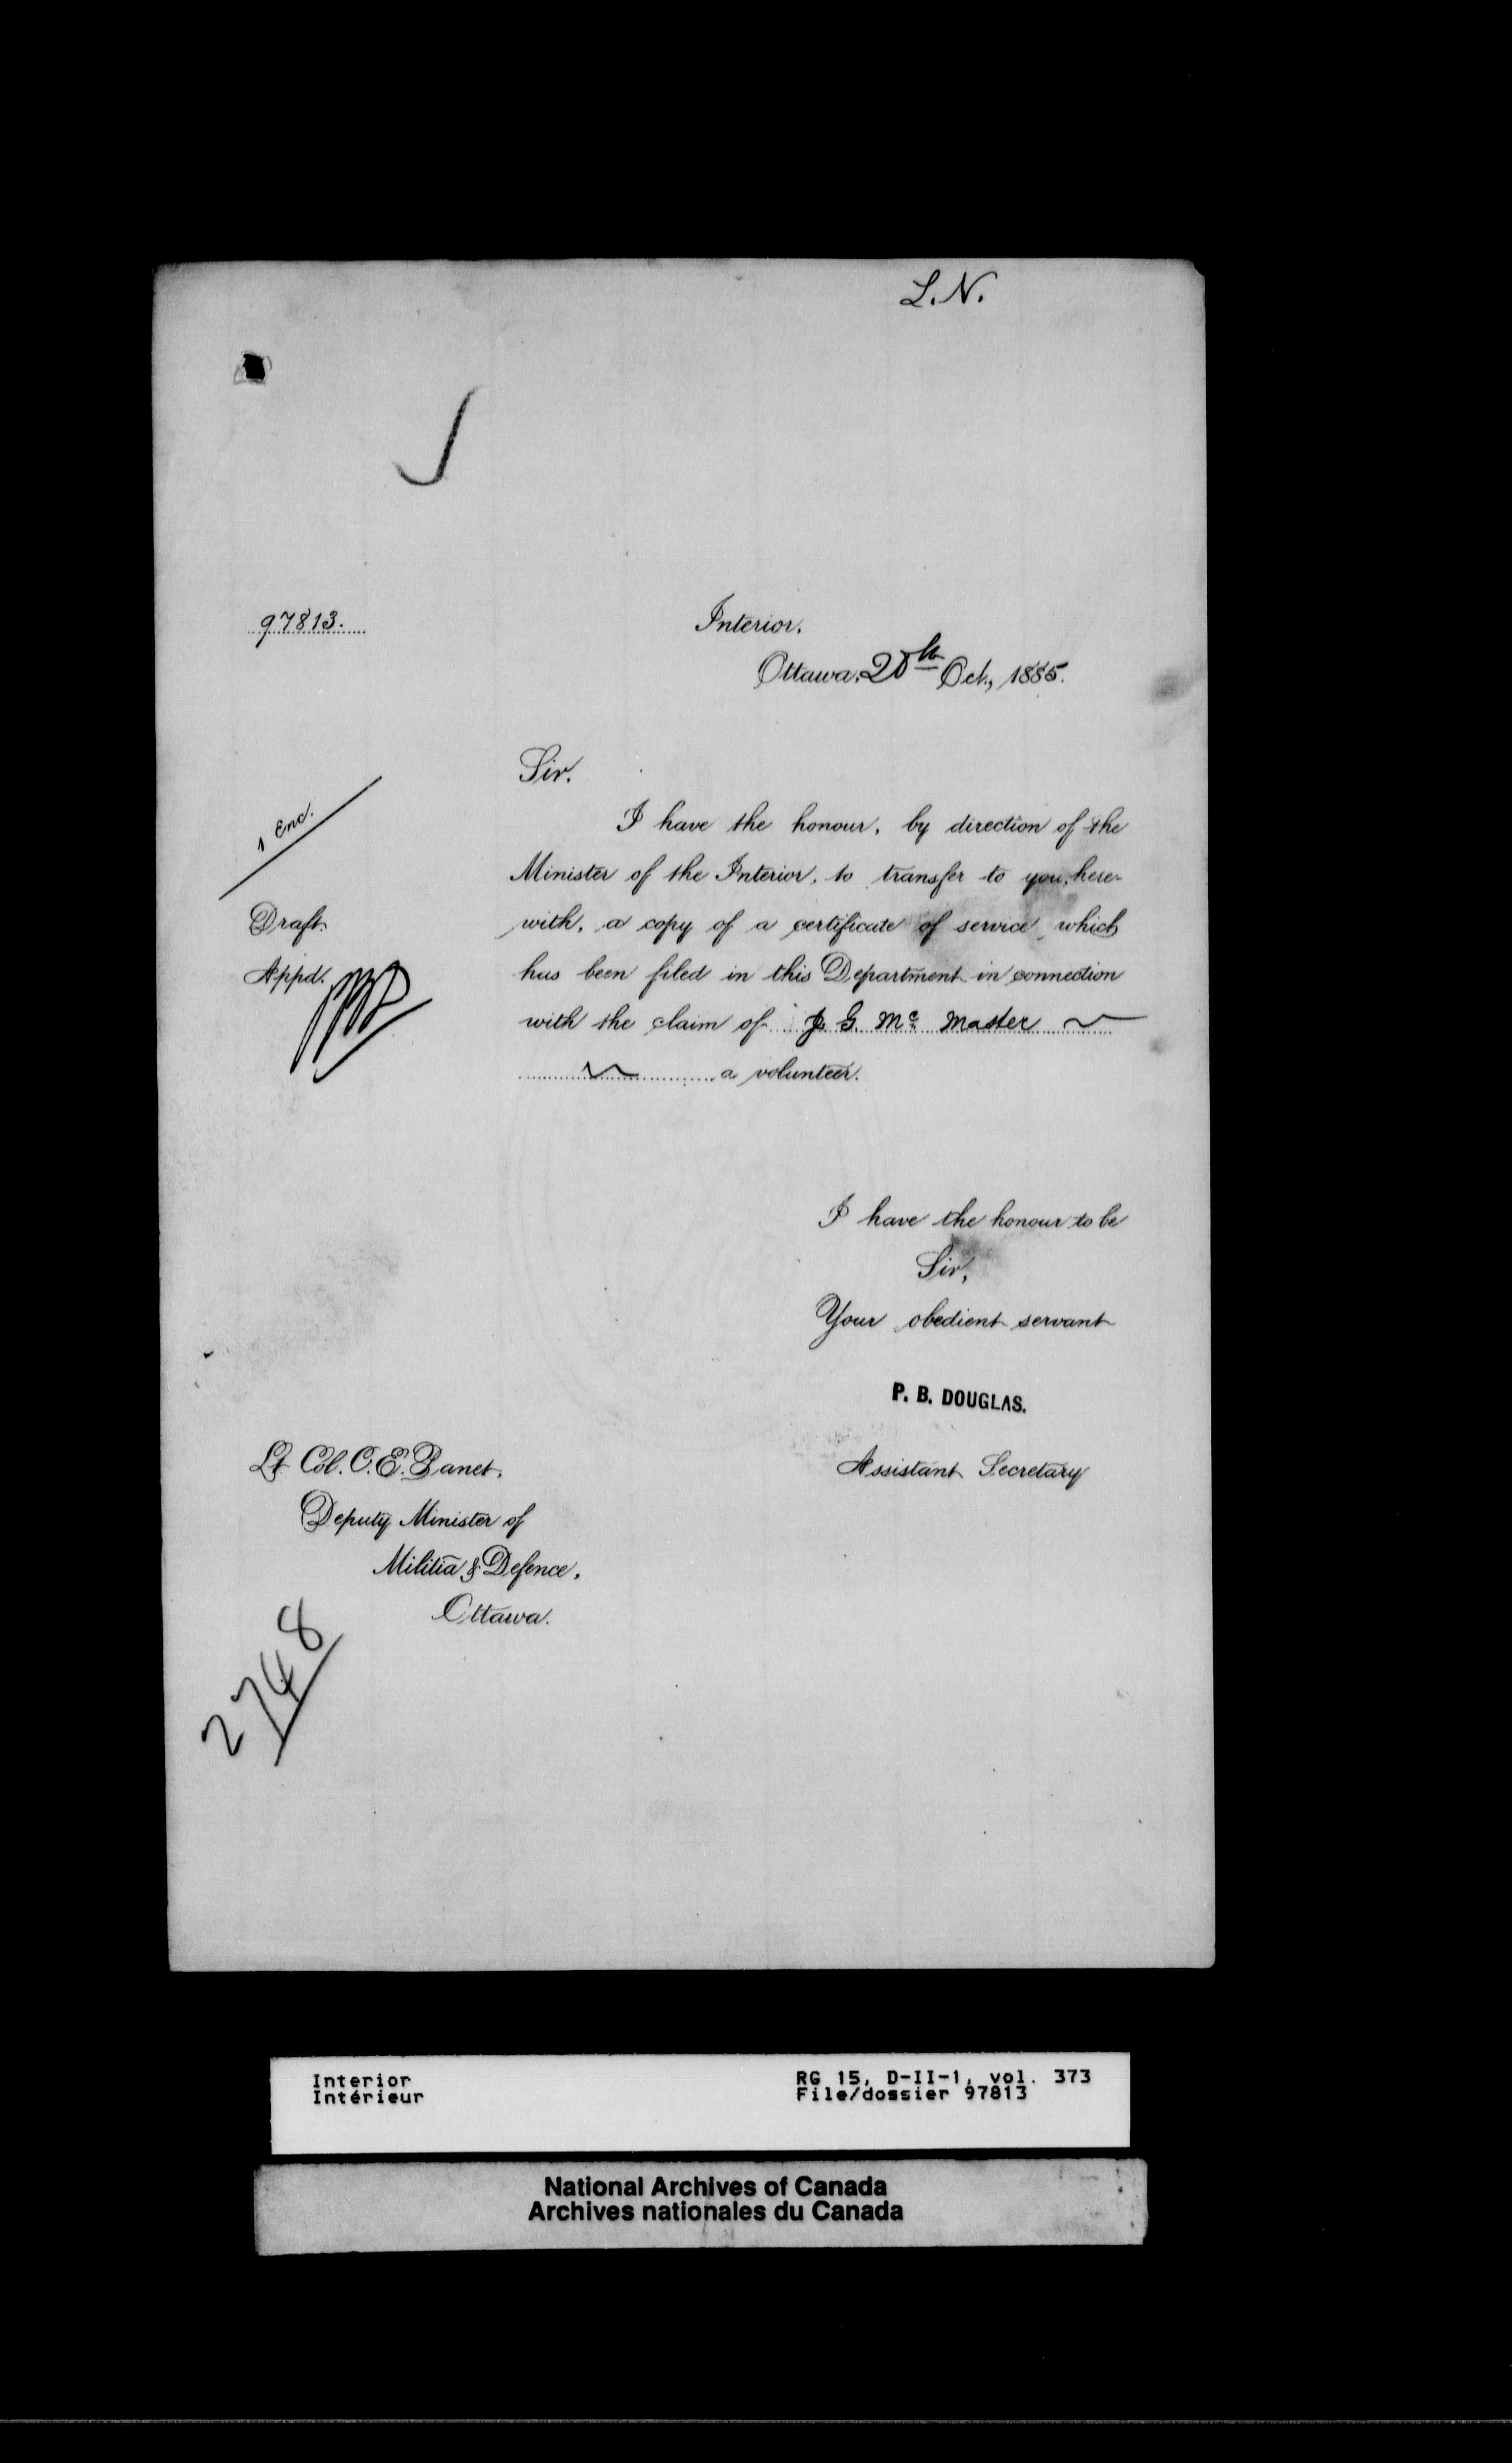 L. N.
97813.
Interior.
Ottawa, 28th Oct., 1885.
Sir.
1 Enc.
I have the honour, by direction of the
Minister of the Interior, to transfer to you, here-
with, a copy of a certificate of service which
has been filed in this Department in connection
with the claim of J. G. Mc Master
a volunteer.
Draft.
Appd.
I have the honour to be
Sir,
Your obedient servant
P. B. DOUGLAS.
Assistant Secretary
Lt Col. C. E. Panet.
Deputy Minister of
Militia & Defence,
Ottawa.
2748
Interior
Intérieur
RG 15, D-II-1, vol. 373
File/dossier 97813
National Archives of Canada
Archives nationales du Canada